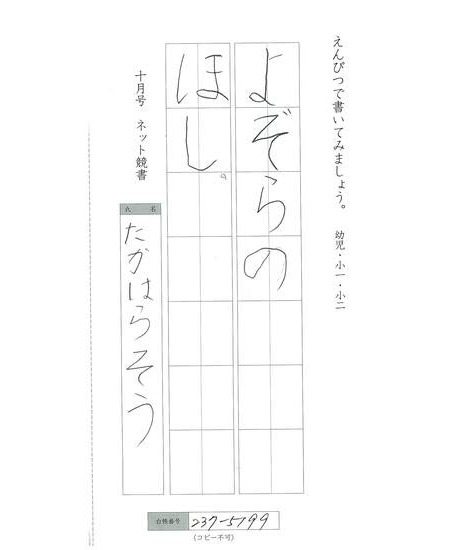 えんぴつで書いてみましょう。 幼児・小一・小二
よぞらの
ほし。
十月号 ネット競書
氏名
たかはらそう
台帳番号 237-5199
(コピー不可)